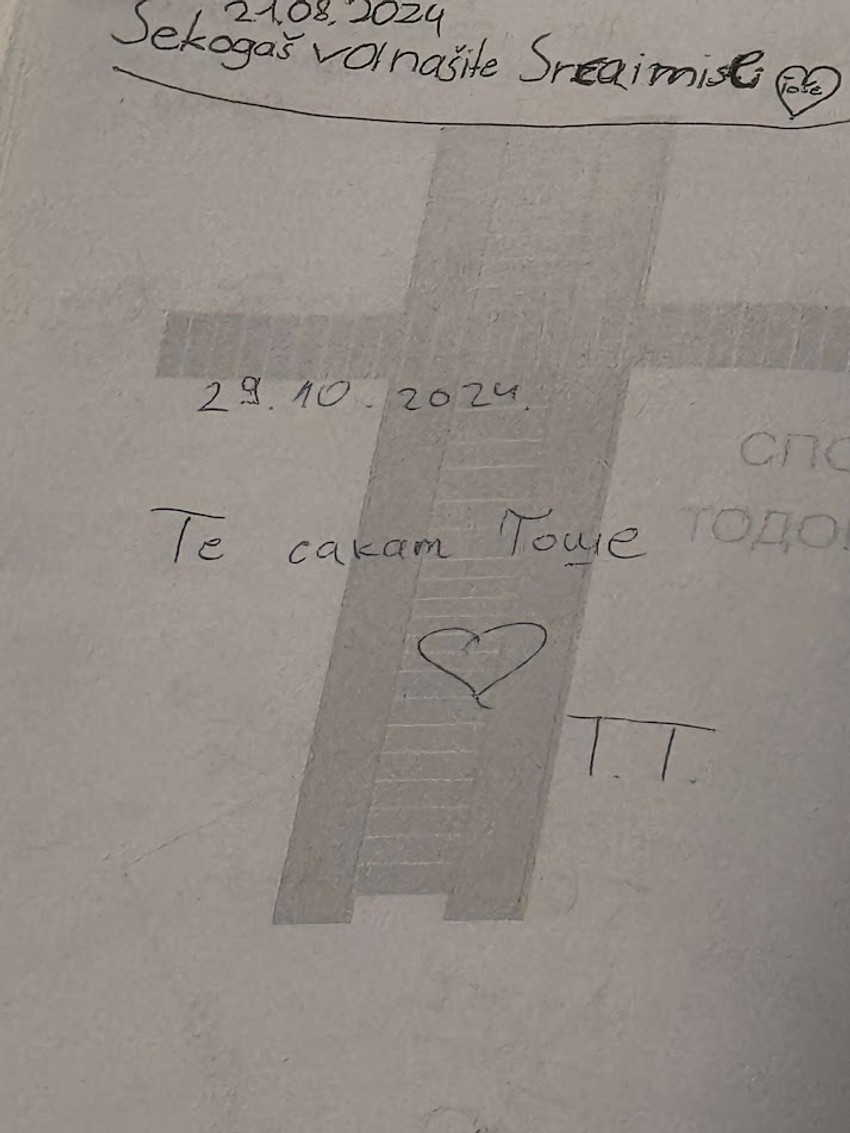 21.08.2024
Sekogaš vo našite Srca i misli Toše
29.10.2024.
Те сакам Тоше
Т.Т.
СПО
ТОДО